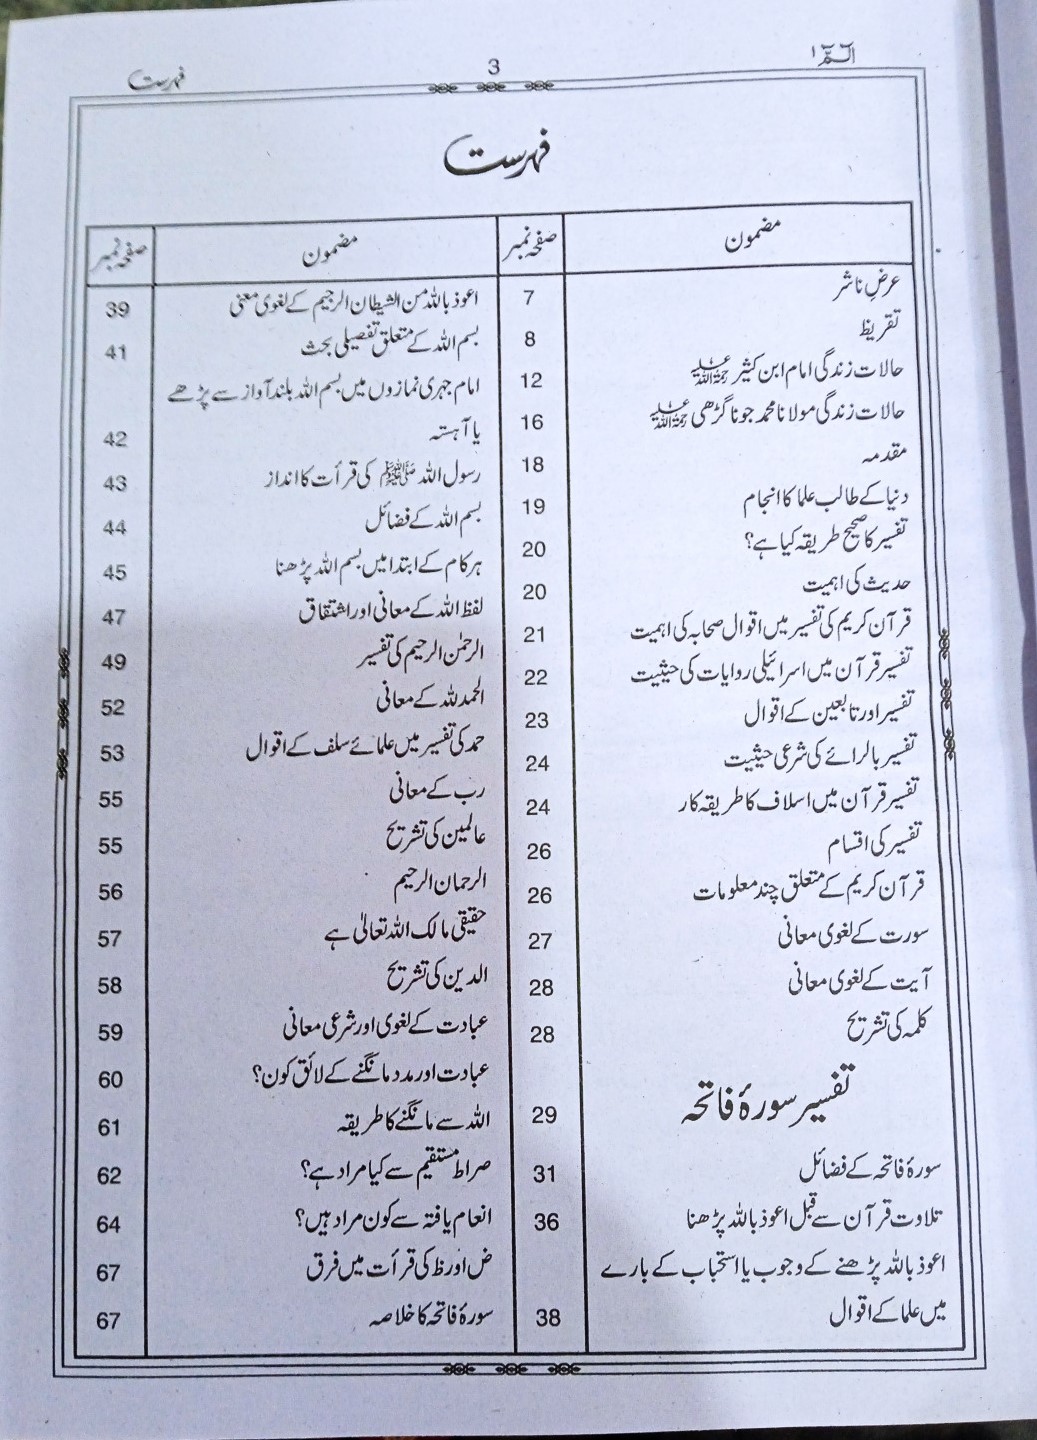 الٓمّٓ ۱
3
فہرست
فہرست
مضمون صفحہ نمبر
عرضِ ناشر 7
تقریظ 8
حالات زندگی امام ابن کثیر رحمۃ اللہ علیہ 12
حالات زندگی مولانا محمد جونا گڑھی رحمۃ اللہ علیہ 16
مقدمہ 18
دنیا کے طالب علما کا انجام 19
تفسیر کا صحیح طریقہ کیا ہے؟ 20
حدیث کی اہمیت 20
قرآن کریم کی تفسیر میں اقوال صحابہ کی اہمیت 21
تفسیر قرآن میں اسرائیلی روایات کی حیثیت 22
تفسیر اور تابعین کے اقوال 23
تفسیر بالرائے کی شرعی حیثیت 24
تفسیر قرآن میں اسلاف کا طریقہ کار 24
تفسیر کی اقسام 26
قرآن کریم کے متعلق چند معلومات 26
سورت کے لغوی معانی 27
آیت کے لغوی معانی 28
کلمہ کی تشریح 28
تفسیر سورۂ فاتحہ 29
سورۂ فاتحہ کے فضائل 31
تلاوت قرآن سے قبل اعوذ باللہ پڑھنا 36
اعوذ باللہ پڑھنے کے وجوب یا استحباب کے بارے
میں علما کے اقوال 38
مضمون صفحہ نمبر
اعوذ باللہ من الشیطان الرجیم کے لغوی معنی 39
بسم اللہ کے متعلق تفصیلی بحث 41
امام جہری نمازوں میں بسم اللہ بلند آواز سے پڑھے
یا آہستہ 42
رسول اللہ ﷺ کی قرأت کا انداز 43
بسم اللہ کے فضائل 44
ہر کام کے ابتدا میں بسم اللہ پڑھنا 45
لفظ اللہ کے معانی اور اشتقاق 47
الرحمٰن الرحیم کی تفسیر 49
الحمدللہ کے معانی 52
حمد کی تفسیر میں علمائے سلف کے اقوال 53
رب کے معانی 55
عالمین کی تشریح 55
الرحمان الرحیم 56
حقیقی مالک اللہ تعالیٰ ہے 57
الدین کی تشریح 58
عبادت کے لغوی اور شرعی معانی 59
عبادت اور مدد مانگنے کے لائق کون؟ 60
اللہ سے مانگنے کا طریقہ 61
صراط مستقیم سے کیا مراد ہے؟ 62
انعام یافتہ سے کون مراد ہیں؟ 64
ض اور ظ کی قرأت میں فرق 67
سورۂ فاتحہ کا خلاصہ 67